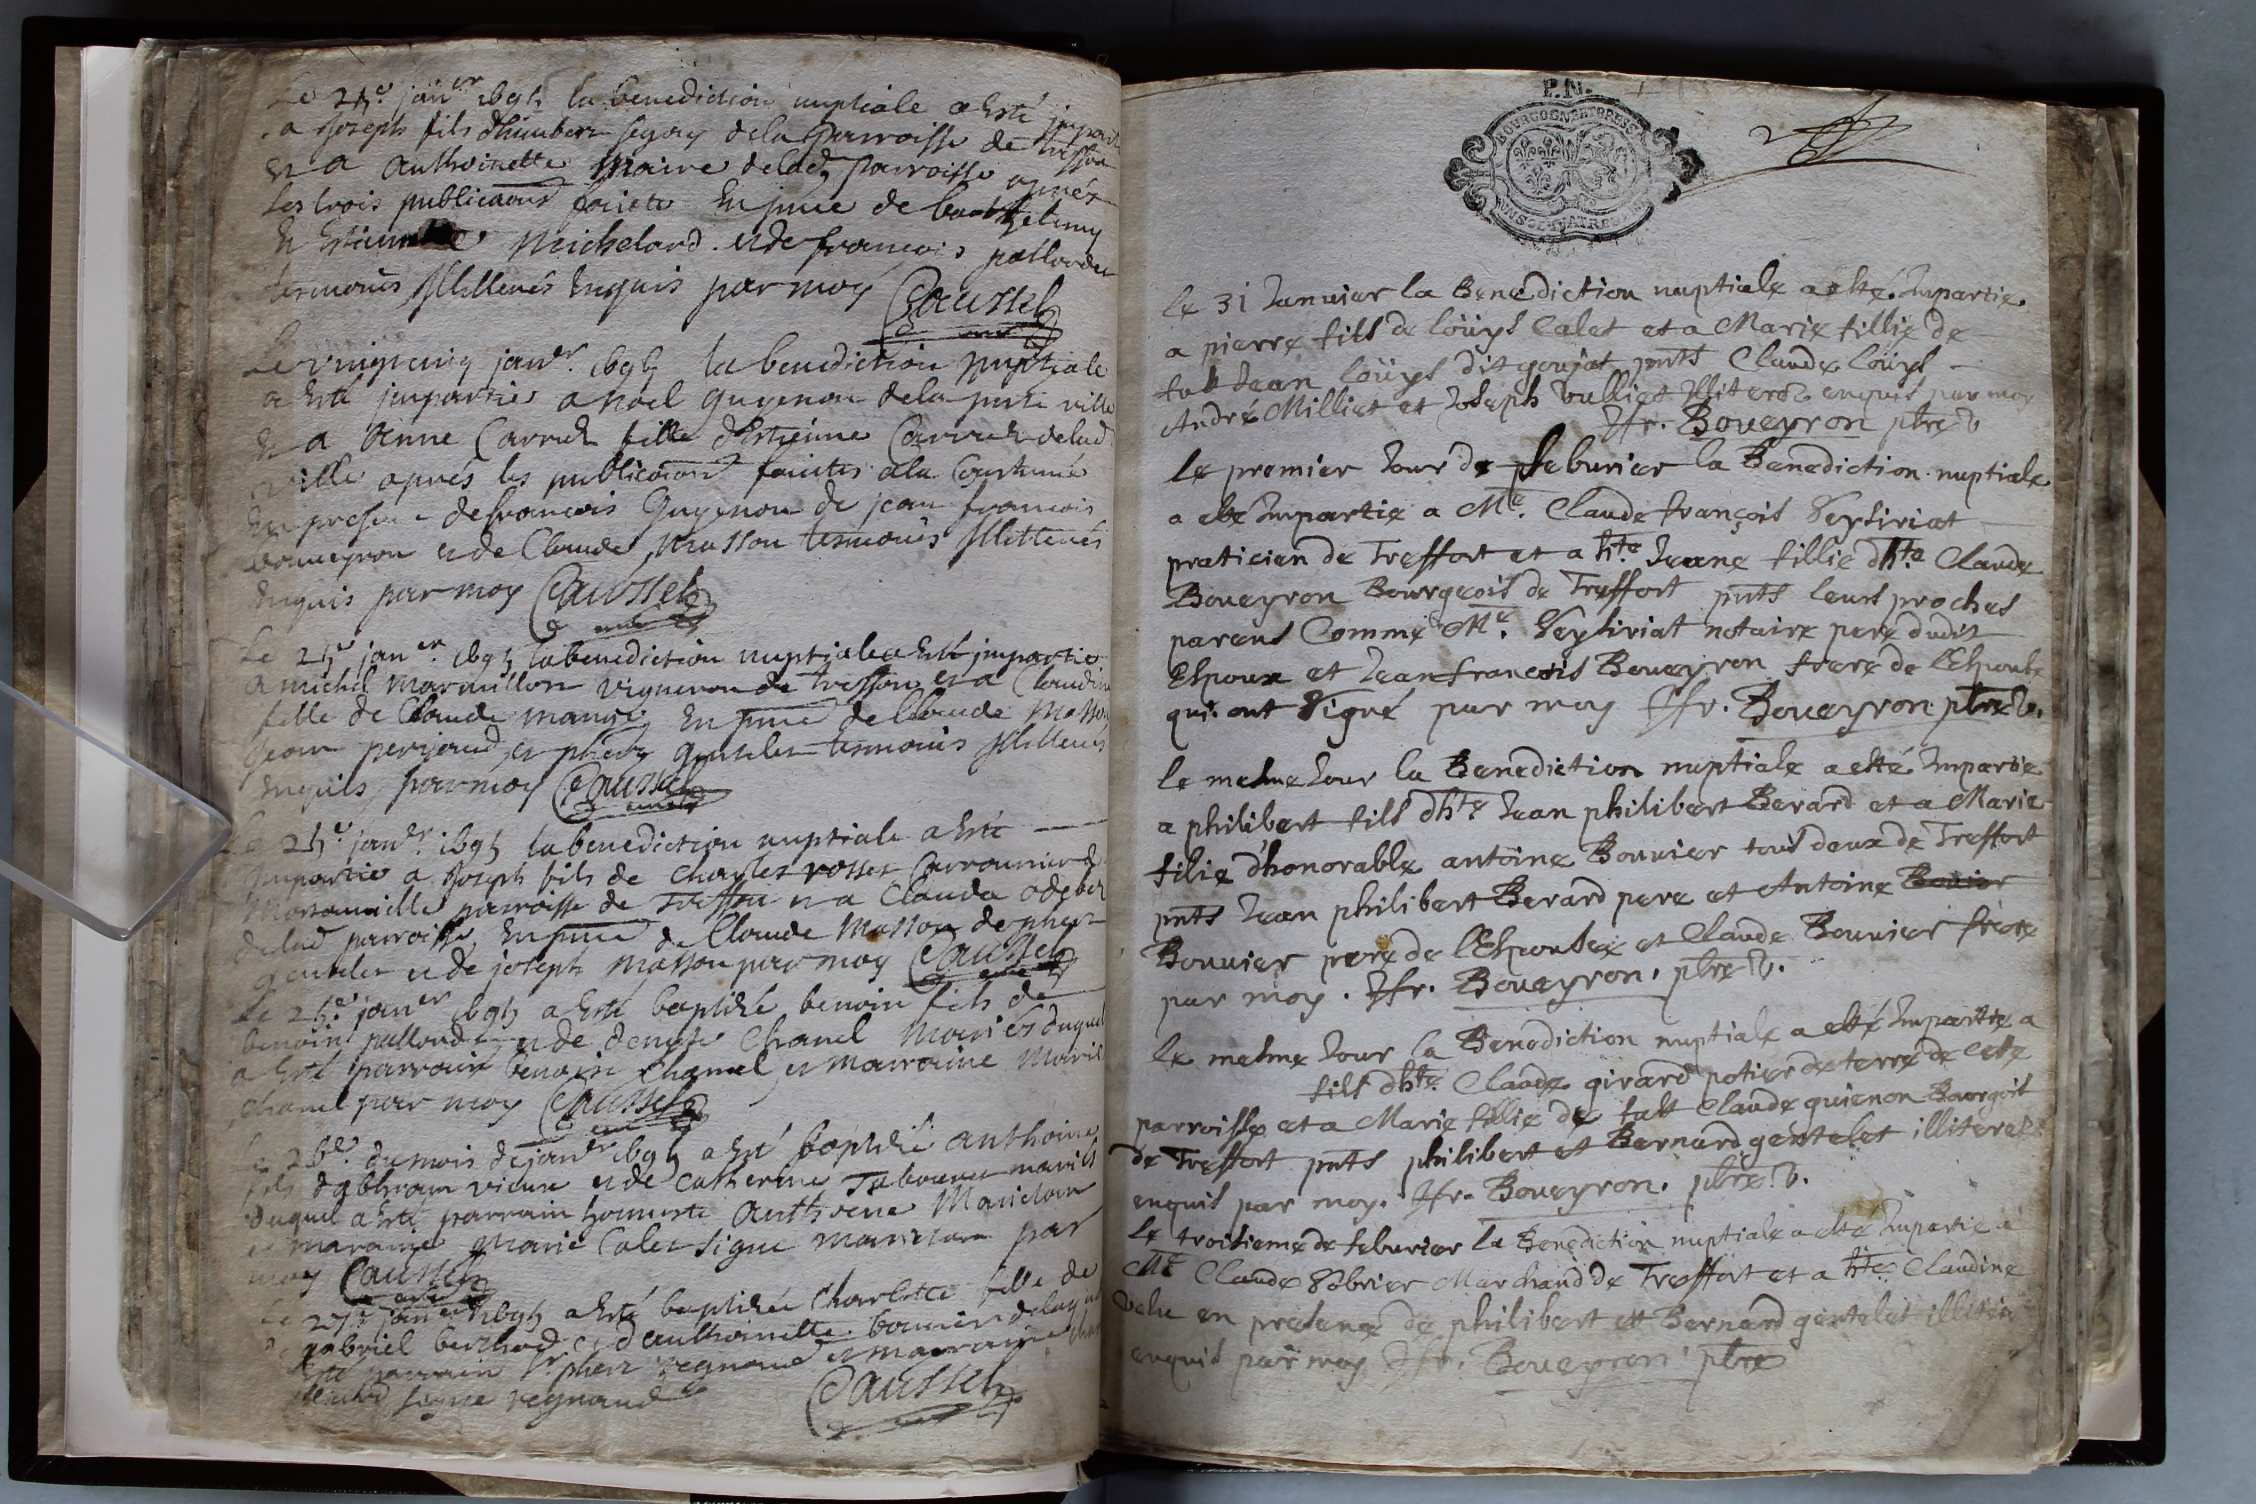 Le 25e janer 1695 la benediction nuptiale a esté impartie
a Joseph fils dhumbert segoy de la parroisse de
et a Anthoinette Maire de lad parroisse apres
les trois publicaons faictes en pnce de barthelemy
et Michelard et de francois pallordet
tesmoins Illitterés enquis par moy Caussel
Le vingtcinq janer 1695 la benediction nuptiale
a esté impartie a noel guyenon de la pnte ville
et a Anne Carrud fille d'Estienne Carrud de lad
ville aprés les publicaons faictes a la Coustume
en presence de francois Guyenon de jean francois
boueyron et de Claude Masson tesmoins Illitterés
enquis par moy Caussel
Le 25e janer 1695 la benediction nuptiale a esté impartie
a michel Marmillon vigneron de treffort et a Claudine
fille de Claude en pnce de Claude Masson
Jean perjaud et phlibt gentelet tesmoins Illitterés
enquis par moy Caussel
Le 25e janer 1695 la benediction nuptiale a esté
Impartie a Joseph fils de Charles rosset
parroisse de Treffort et a Clauda odebet
de lad parroisse, en pnce de Claude Masson de phibert
gentelet et de joseph Masson par moy Caussel
Le 25e janer 1695 a esté baptisé benoist fils de
benoist pallordet et de denyse Chanel Mariés duquel
a esté parrain benoist Chanel et marraine Marie
Chanel par moy Caussel
Le 26e du mois de janer 1695 a esté baptisé anthoine
fils dabhram et de Catherine Tabouret mariés
duquel a esté parrain honneste Anthoene Marielon
et maraine Marie Calet signe Marielon par
moy Caussel
Le 27e janer 1695 a esté baptisée Charlotte fille de
gabriel berthod et d'anthoinette bouvier de laquelle
esté parrain Sr phert regnaud et marraine
signe regnaud Caussel
P.N.
BOURGOGNE ET BRESSE
le 31 Januier la Benediction nuptiale a esté Impartie
a pierre fils de loüys Calet et a Marie fillie de
fut Jean loüys dit goujat pnts Claude loüys
André Milliet et Joseph Vulliet Illiterez enquis par moy
Jfr. Boueyron ptre V.
le premier Jour de feburier la Benediction nuptiale
a esté Impartie a Me. Claude françois Veysiriat
praticien de Treffort et a hte Jeane fillie dhte Claude
Boueyron Bourgeois de Treffort pnts leurs proches
parens Comme Me. Veysiriat notaire pere dudit
Espoux et Jean françois Boueyron frere de l'Espouse
qui ont Signé par moy Jfr. Boueyron ptre V.
le mesme Jour la Benediction nuptiale a esté Impartie
a philibert fils dhte Jean philibert Berard et a Marie
filie d'honorable antoine Bouuier tous deux de Treffort
pnts Jean philibert Berard pere et Antoine Bouier
Bouuier pere de l'Espousée et Claude Bouuier frere
par moy. Jfr. Boueyron. ptre V.
le mesme Jour la Benediction nuptiale a esté Impartie a
fils dhte. Claude girard potier de terre de cete
parroisse et a Marie fillie de fut Claude guienon Bourgois
de Treffort pnts philibert et Bernard gentelet illiteres
enquis par moy. Jfr. Boueyron. ptre V.
le troisieme de feburier la Benediction nuptiale a esté Impartie a
Me Claude Marchand de Treffort et a hte Claudine
velu en presence de philibert et Bernard gentelet
enquis par moy Jfr. Boueyron ptre